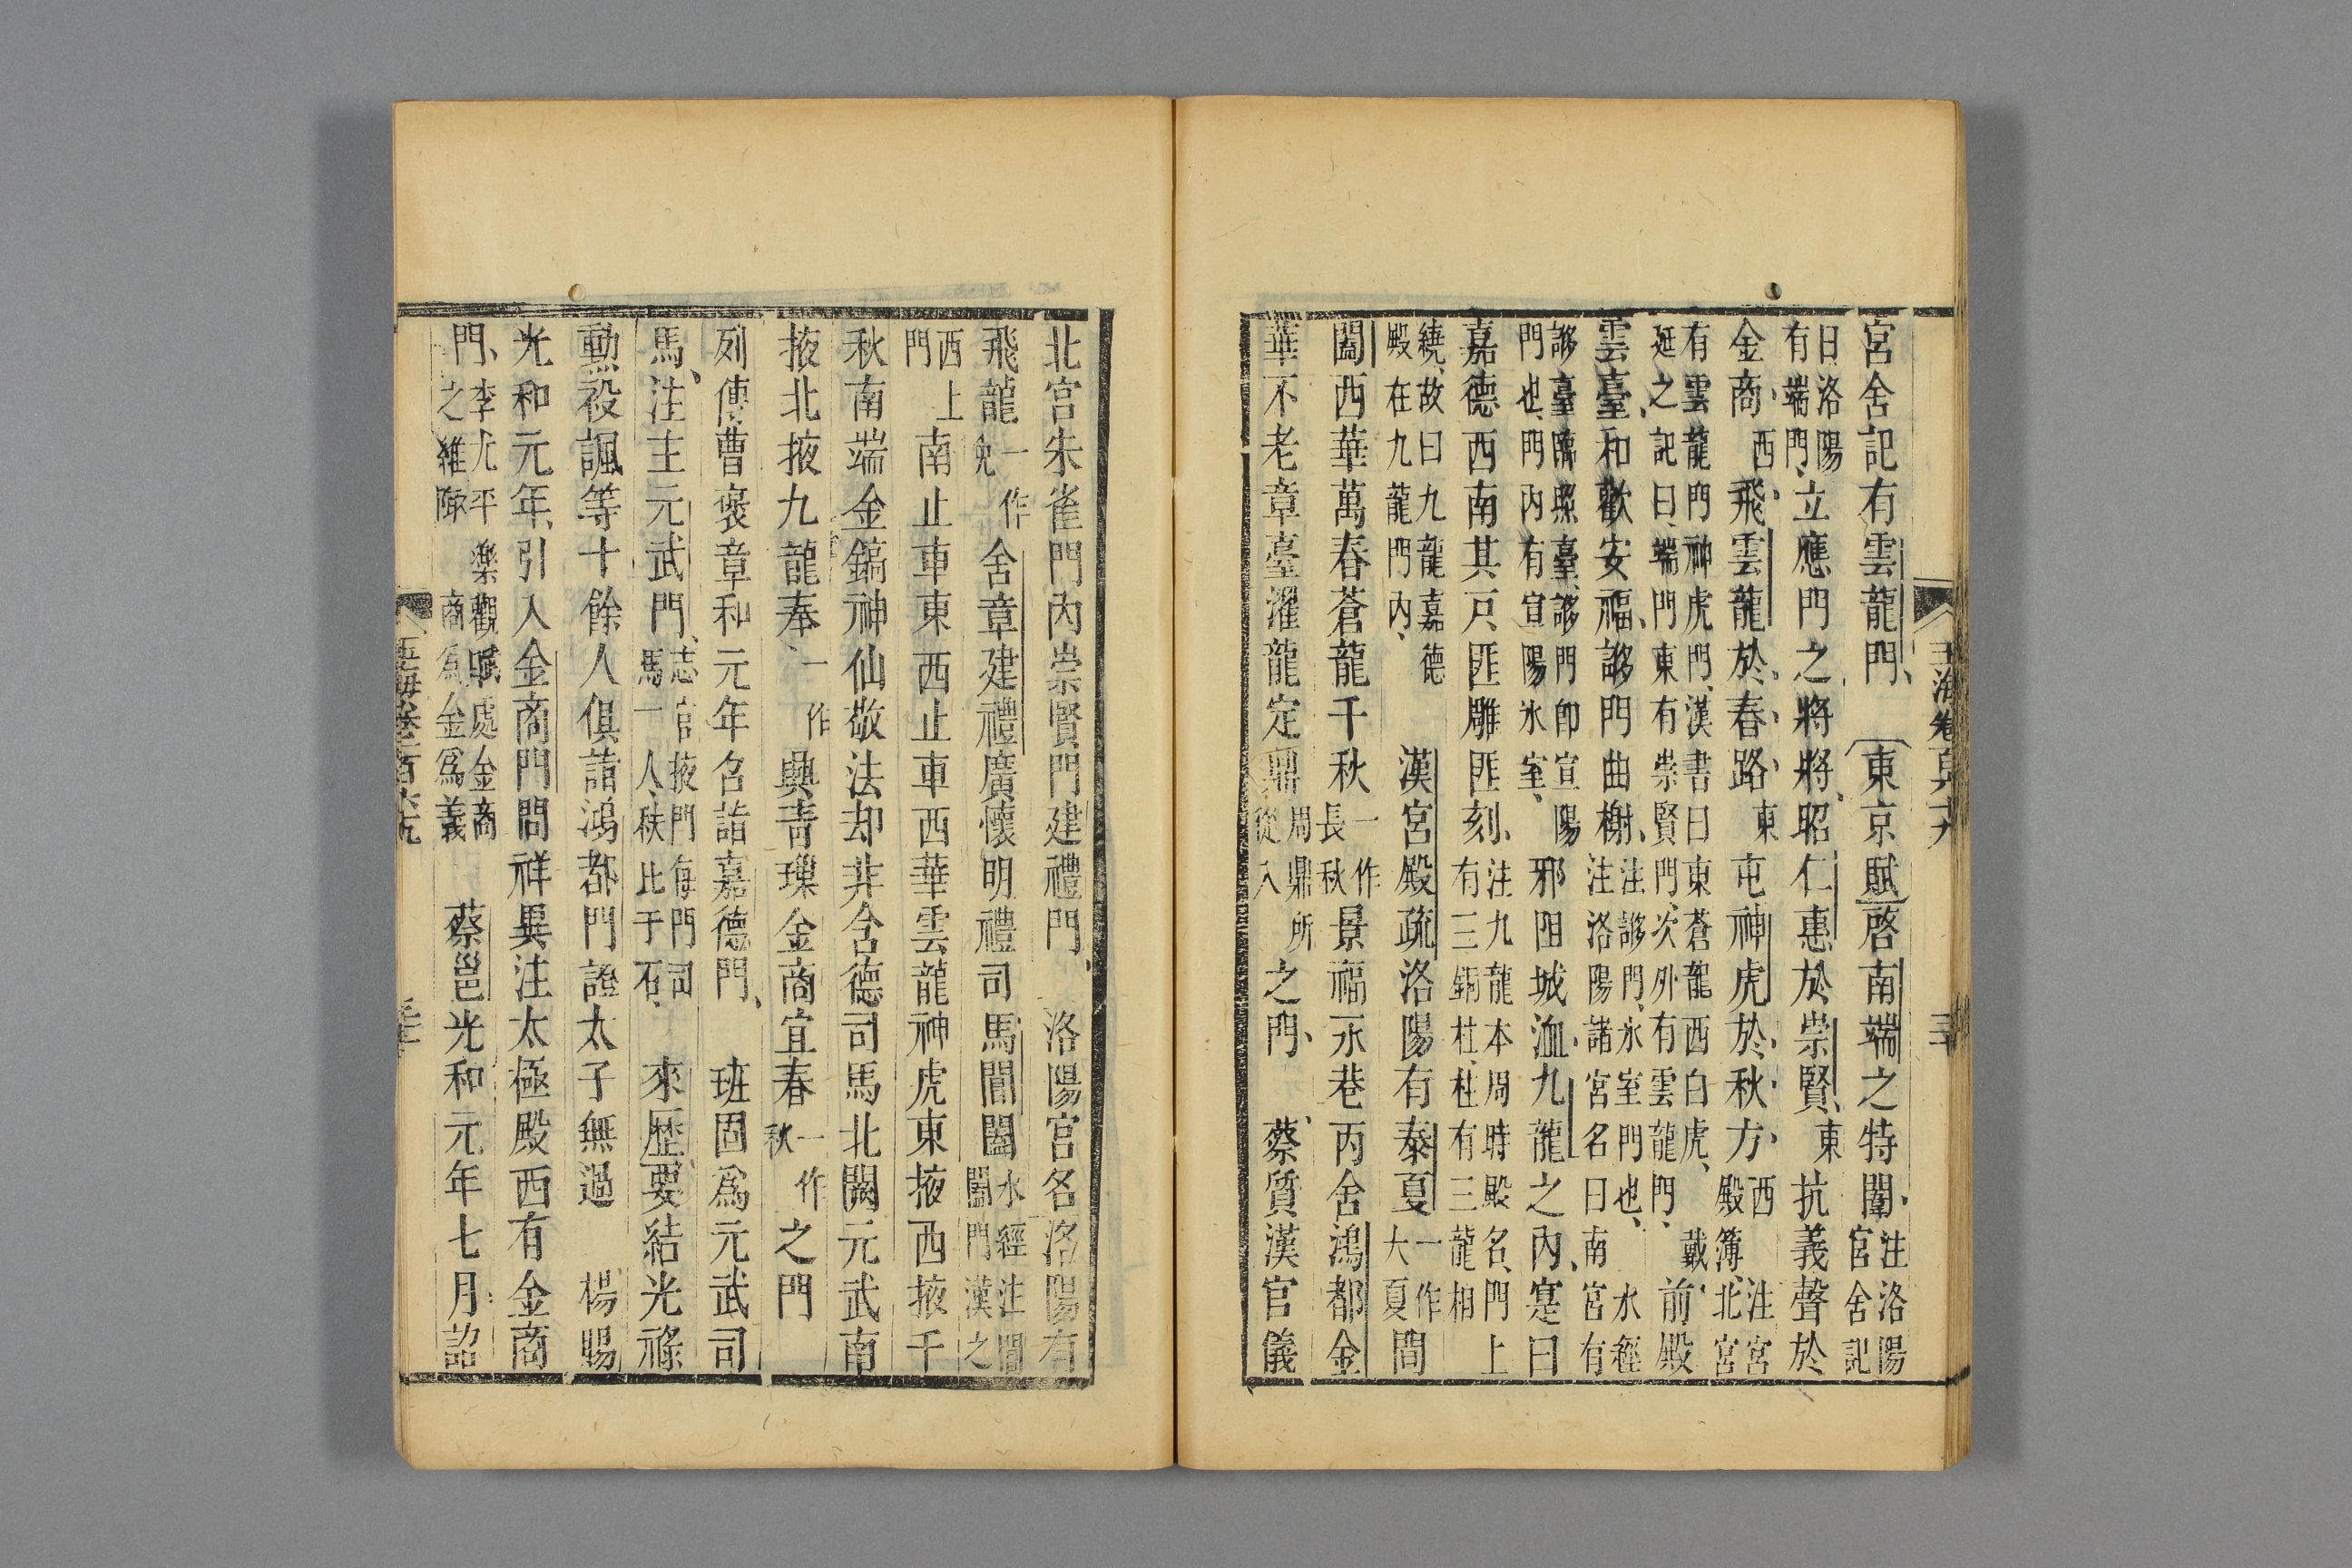 玉海卷
宮舍記有雲龍門東京賦啓南端之特闈注洛陽宮舍記
曰洛陽有端門立應門之將將昭仁惠於崇賢東抗義聲於
金商西飛雲龍於春路東屯神虎於秋方西注宮殿簿北宮
有雲龍門神虎門漢書曰東蒼龍西白虎戴延之記曰端門東有崇賢門次外有雲龍門前殿
雲臺和歡安福謻門曲榭注謻門冰室門也水經注洛陽諸宮名曰南宮有
謻臺臨照臺謻門卽宣陽門也門內有宣陽冰室邪阻城洫九龍之內寔曰
嘉德西南其戶匪雕匪刻注九龍本周時殿名門上有三銅柱柱有三龍相
繞故曰九龍嘉德殿在九龍門內漢宮殿疏洛陽有泰夏一作大夏閶
闔西華萬春蒼龍千秋一作長秋景福永巷丙舍鴻都金
華不老章臺濯龍定鼎周鼎所從入之門蔡質漢官儀
北宮朱雀門內崇賢門建禮門洛陽宮名洛陽有
飛龍一作兔舍章建禮廣懷明禮司馬閶闔水經注閶闔門漢之
西上門南止車東西止車西華雲龍神虎東掖西掖千
秋南端金鎬神仙敬法却非含德司馬北闕元武南
掖北掖九龍奉一作興青璅金商宜春一作秋之門
列傳曹褒章和元年召詣嘉德門班固爲元武司
馬注主元武門志宮掖門每門司馬一人秩比千石來歷要結光祿
勳祋諷等十餘人俱詣鴻都門證太子無過楊賜
光和元年引入金商門問祥異注太極殿西有金商
門李尤平樂觀賦處金商之維陬商爲金爲義蔡邕光和元年七月詔